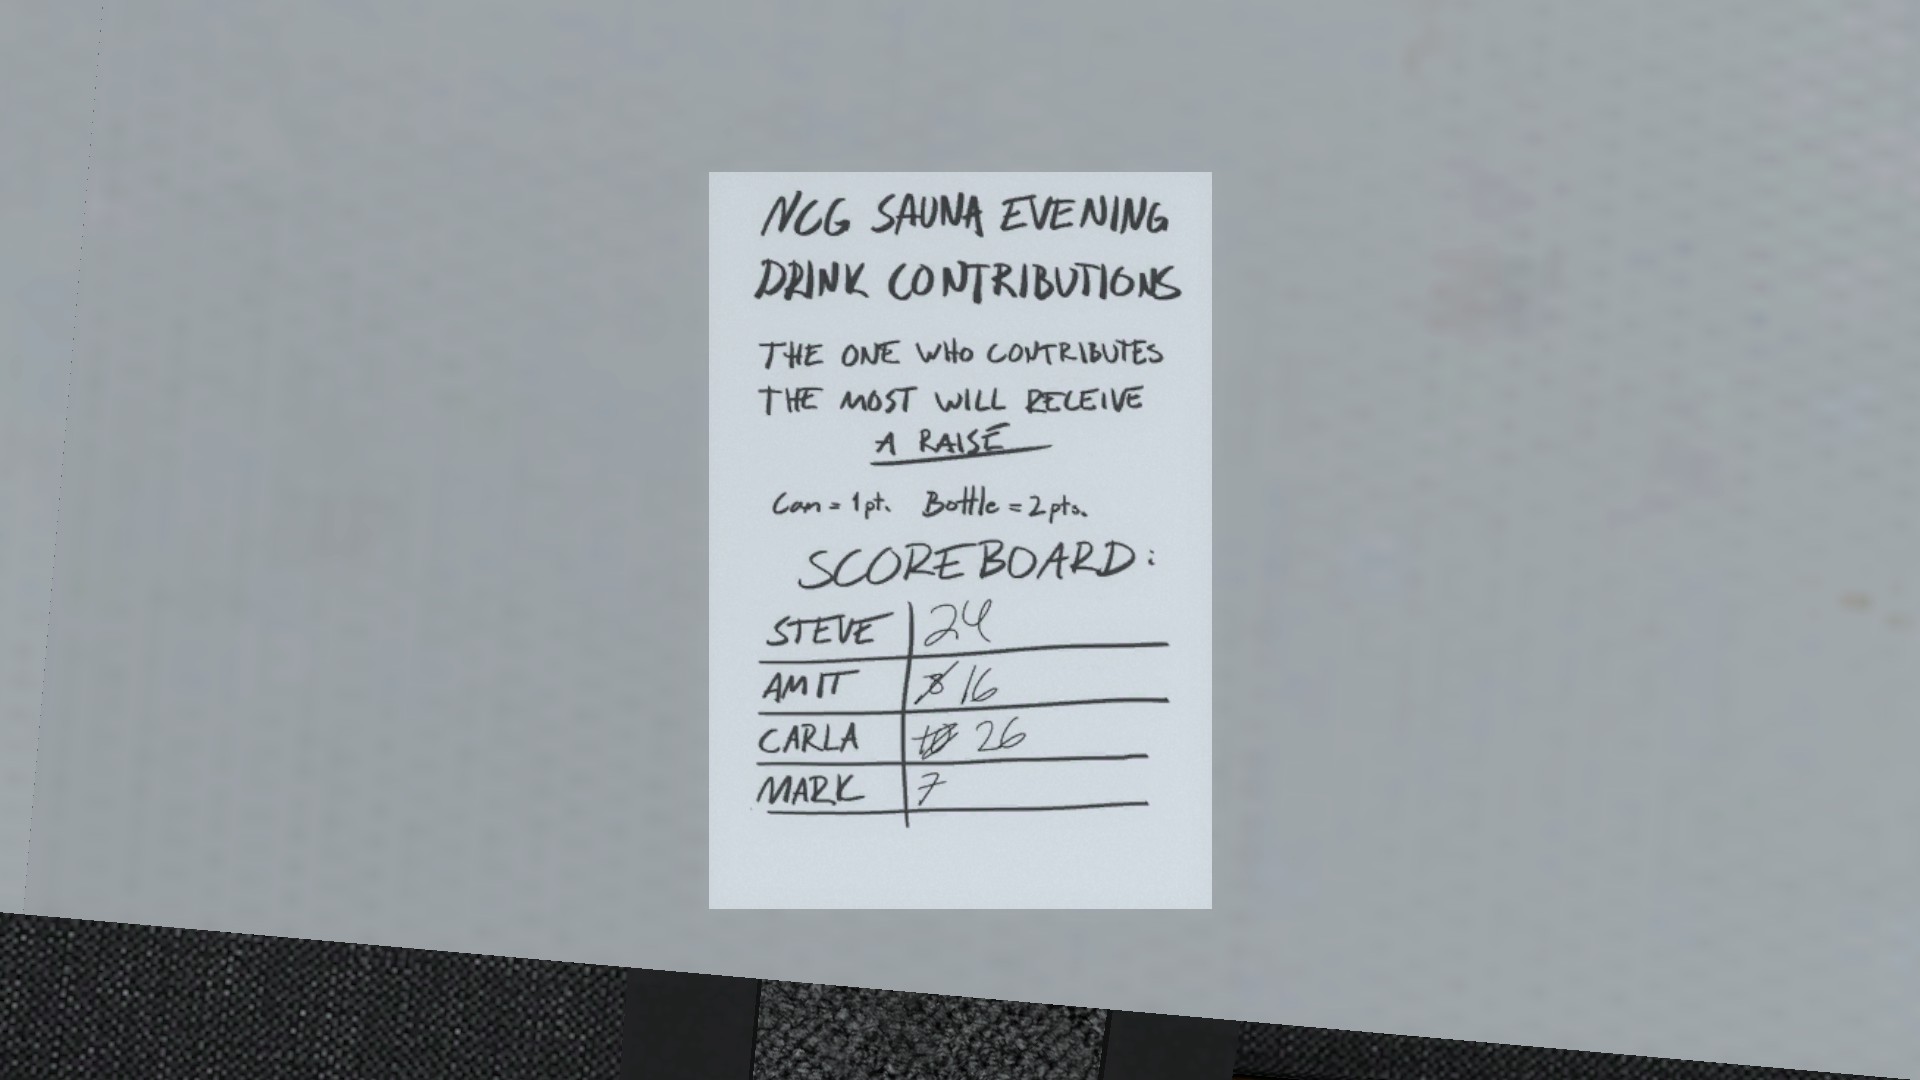 NCG SAUNA EVENING
DRINK CONTRIBUTIONS
THE ONE WHO CONTRIBUTES
THE MOST WILL RECEIVE
A RAISE
Can = 1 pt. Bottle = 2 pts.
SCOREBOARD:
STEVE 24
AMIT 8 16
CARLA 26
MARK 7